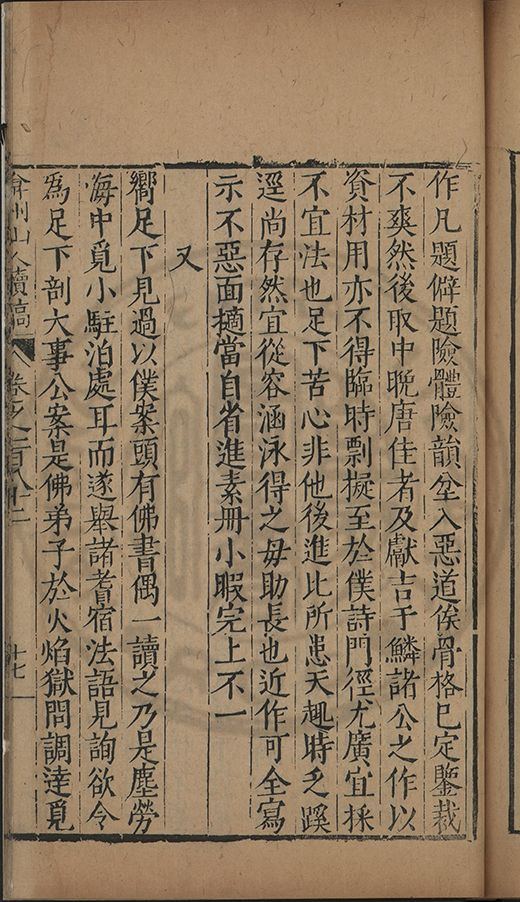 作凡題僻題險體險韻坌入惡道俟骨格巳定鑒裁
不爽然後取中晚唐佳者及獻吉于鱗諸公之作以
資材用亦不得臨時剽擬至於僕詩門徑尤廣宜採
不宜法也足下苦心非他後進比所患天趣時乏蹊
逕尚存然宜從容涵泳得之毋助長也近作可全寫
示不惡面擿當自省進素冊小暇完上不一
又
嚮足下見過以僕案頭有佛書偶一讀之乃是塵勞
海中覓小駐泊處耳而遂舉諸耆宿法語見詢欲令
爲足下剖大事公案是佛弟子於火焰獄問調達覓
弇州山人續稿 卷之一百八十二 十七